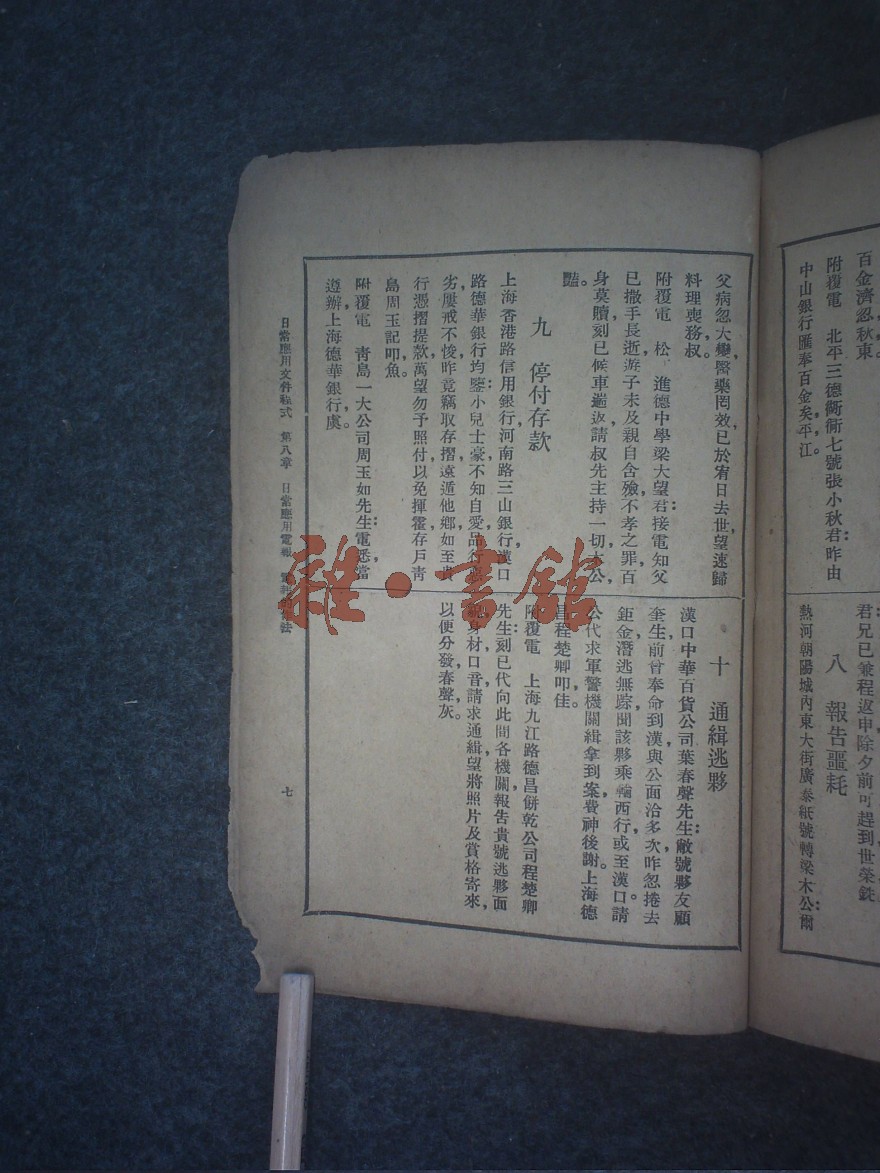 百金濟忽秋東。
附覆電　北平三德衚衕七號張小秋君：昨由
中山銀行匯奉百金矣，平江。
君兄已兼程返申，除夕前可趕到，世榮銑
八　報告噩耗
熱河朝陽城內東大街廣泰紙號轉梁木公：爾
父病忽大變，醫藥罔效，已於宥日去世，望速歸
料理喪務，叔。
附覆電　松　進德中學梁大望君：接電知父
已撒手長逝，遊子未及親自含殮，不孝之罪，百
身莫贖，刻已候車遄返，請叔先主持一切，木公
豔。
九　停付存款
上海香港路信用銀行，河南路三山銀行，漢口
路德華銀行均鑒：小兒士豪不知自愛，品行
劣，屢戒不悛，昨竟竊取存摺，遠遁他鄉，如至
行憑摺提款，萬望勿予照付，以免揮霍，存戶青
島周玉記叩魚。
附覆電　青島一大公司周玉如先生：電悉，當
遵辦，上海德華銀行，虞。
十　通緝逃夥
漢口中華百貨公司葉春聲先生：敝號夥友顧
奎生，前曾奉命到漢，與公面洽多次，昨忽捲去
鉅金，潛逃無踪，聞該夥乘輪西行，或至漢口。請
公代求軍警機關緝拿到案，費神後謝。上海德
昌程楚卿叩佳。
附覆電　上海九江路德昌餅乾公司程楚卿
先生：刻已代向此間各機關，報告貴號逃夥面
貌身材口音，請求通緝，望將照片及賞格寄來，
以便分發，春聲，灰。
日常應用文件程式　第八章　日常應用電報　電報的作法
七
雜·書館